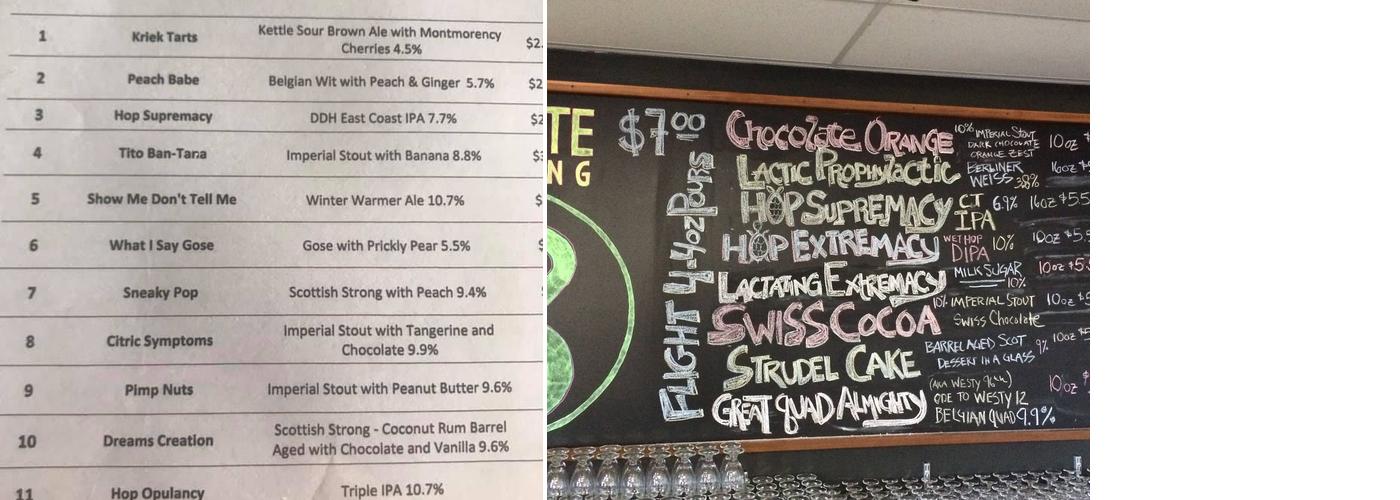 1 Kriek Tarts Kettle Sour Brown Ale with Montmorency
Cherries 4.5% $2.
2 Peach Babe Belgian Wit with Peach & Ginger 5.7% $2
3 Hop Supremacy DDH East Coast IPA 7.7% $2
4 Tito Ban-Tana Imperial Stout with Banana 8.8% $
5 Show Me Don't Tell Me Winter Warmer Ale 10.7% $
6 What I Say Gose Gose with Prickly Pear 5.5% $
7 Sneaky Pop Scottish Strong with Peach 9.4%
8 Citric Symptoms Imperial Stout with Tangerine and
Chocolate 9.9%
9 Pimp Nuts Imperial Stout with Peanut Butter 9.6%
10 Dreams Creation Scottish Strong - Coconut Rum Barrel
Aged with Chocolate and Vanilla 9.6%
11 Hop Opulancy Triple IPA 10.7%
TE
NG
$7.00
FLIGHT 4-4oz Pours
Chocolate ORANGE 10% IMPERIAL STOUT
DARK CHOCOLATE
ORANGE ZEST 10oz $
LACTIC PROPHYlActic BERLINER
WEISS 3.8% 16oz $
HOP SUPREMACY CT
IPA 6.9% 16oz $5.5
HOP EXTREMACY WET HOP
DIPA 10% 10oz $5.
LACTATING EXTREMACY MILK SUGAR
10% 10oz $5.
SWISS COCOA 10% IMPERIAL STOUT
Swiss Chocolate 10oz $
STRUDEL CAKE BARREL AGED SCOT
DESSERT IN A GLASS 9% 10oz $
GREAT QUAD ALMIGHTY (AKA WESTY
ODE TO WESTY 12
BELGIAN QUAD 9.9% 10oz